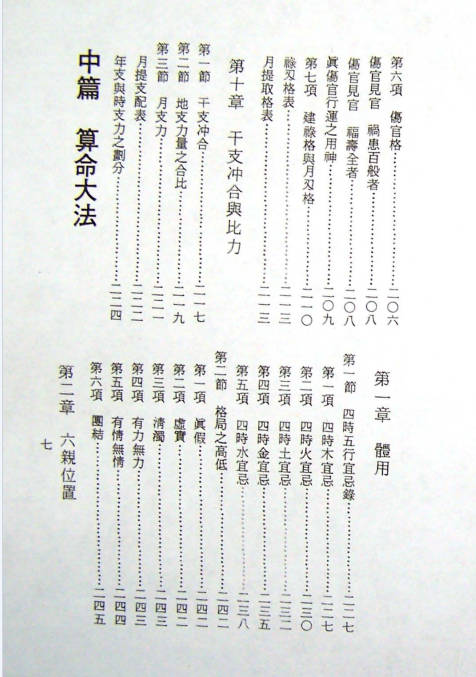 第六項 傷官格………二〇六
傷官見官 禍患百般者………二〇八
傷官見官 福壽全者………二〇八
眞傷官行運之用神………二〇九
第七項 建祿格與月刃格………二一〇
祿刃格表………二一三
月提取格表………二一三
第十章 干支冲合與比力
第一節 干支冲合………二一七
第二節 地支力量之合比………二一九
第三節 月支力………二二一
月提支配表………二二二
年支與時支力之劃分………二二四
中篇 算命大法
第一章 體用
第一節 四時五行宜忌錄………二二七
第一項 四時木宜忌………二二七
第二項 四時火宜忌………二三〇
第三項 四時土宜忌………二三二
第四項 四時金宜忌………二三五
第五項 四時水宜忌………二三八
第二節 格局之高低………二四二
第一項 眞假………二四二
第二項 虛實………二四二
第三項 淸濁………二四三
第四項 有力無力………二四三
第五項 有情無情………二四四
第六項 團結………二四五
第二章 六親位置
七